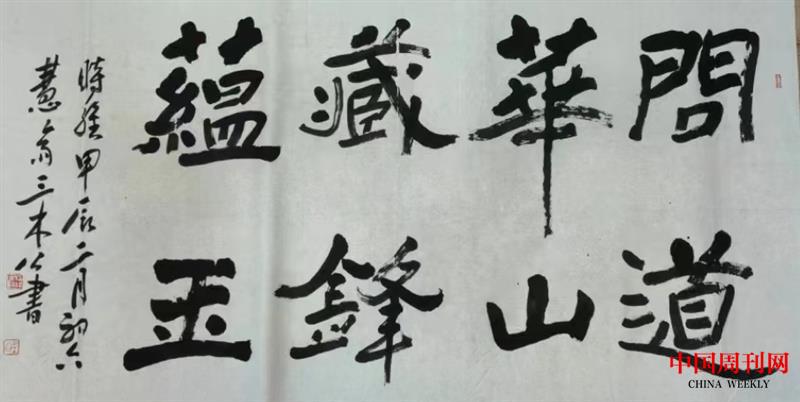 問道
華山
藏鋒
藴玉
時甲辰二月初六
慧翁三木公書
中国周刊网
CHINA WEEKLY